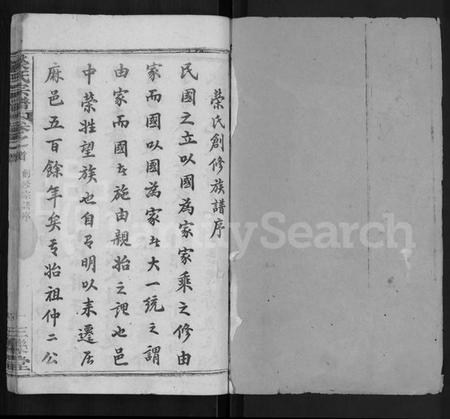 榮氏創修族譜序
民國之立以國為家家乘之修由
家而國以國為家者大一統之謂
由家而國者施由親始之謂也邑
中榮姓望族也自有明以來遷居
麻邑五百餘年矣考始祖仲二公
榮氏宗譜
卷首
FamilySearch